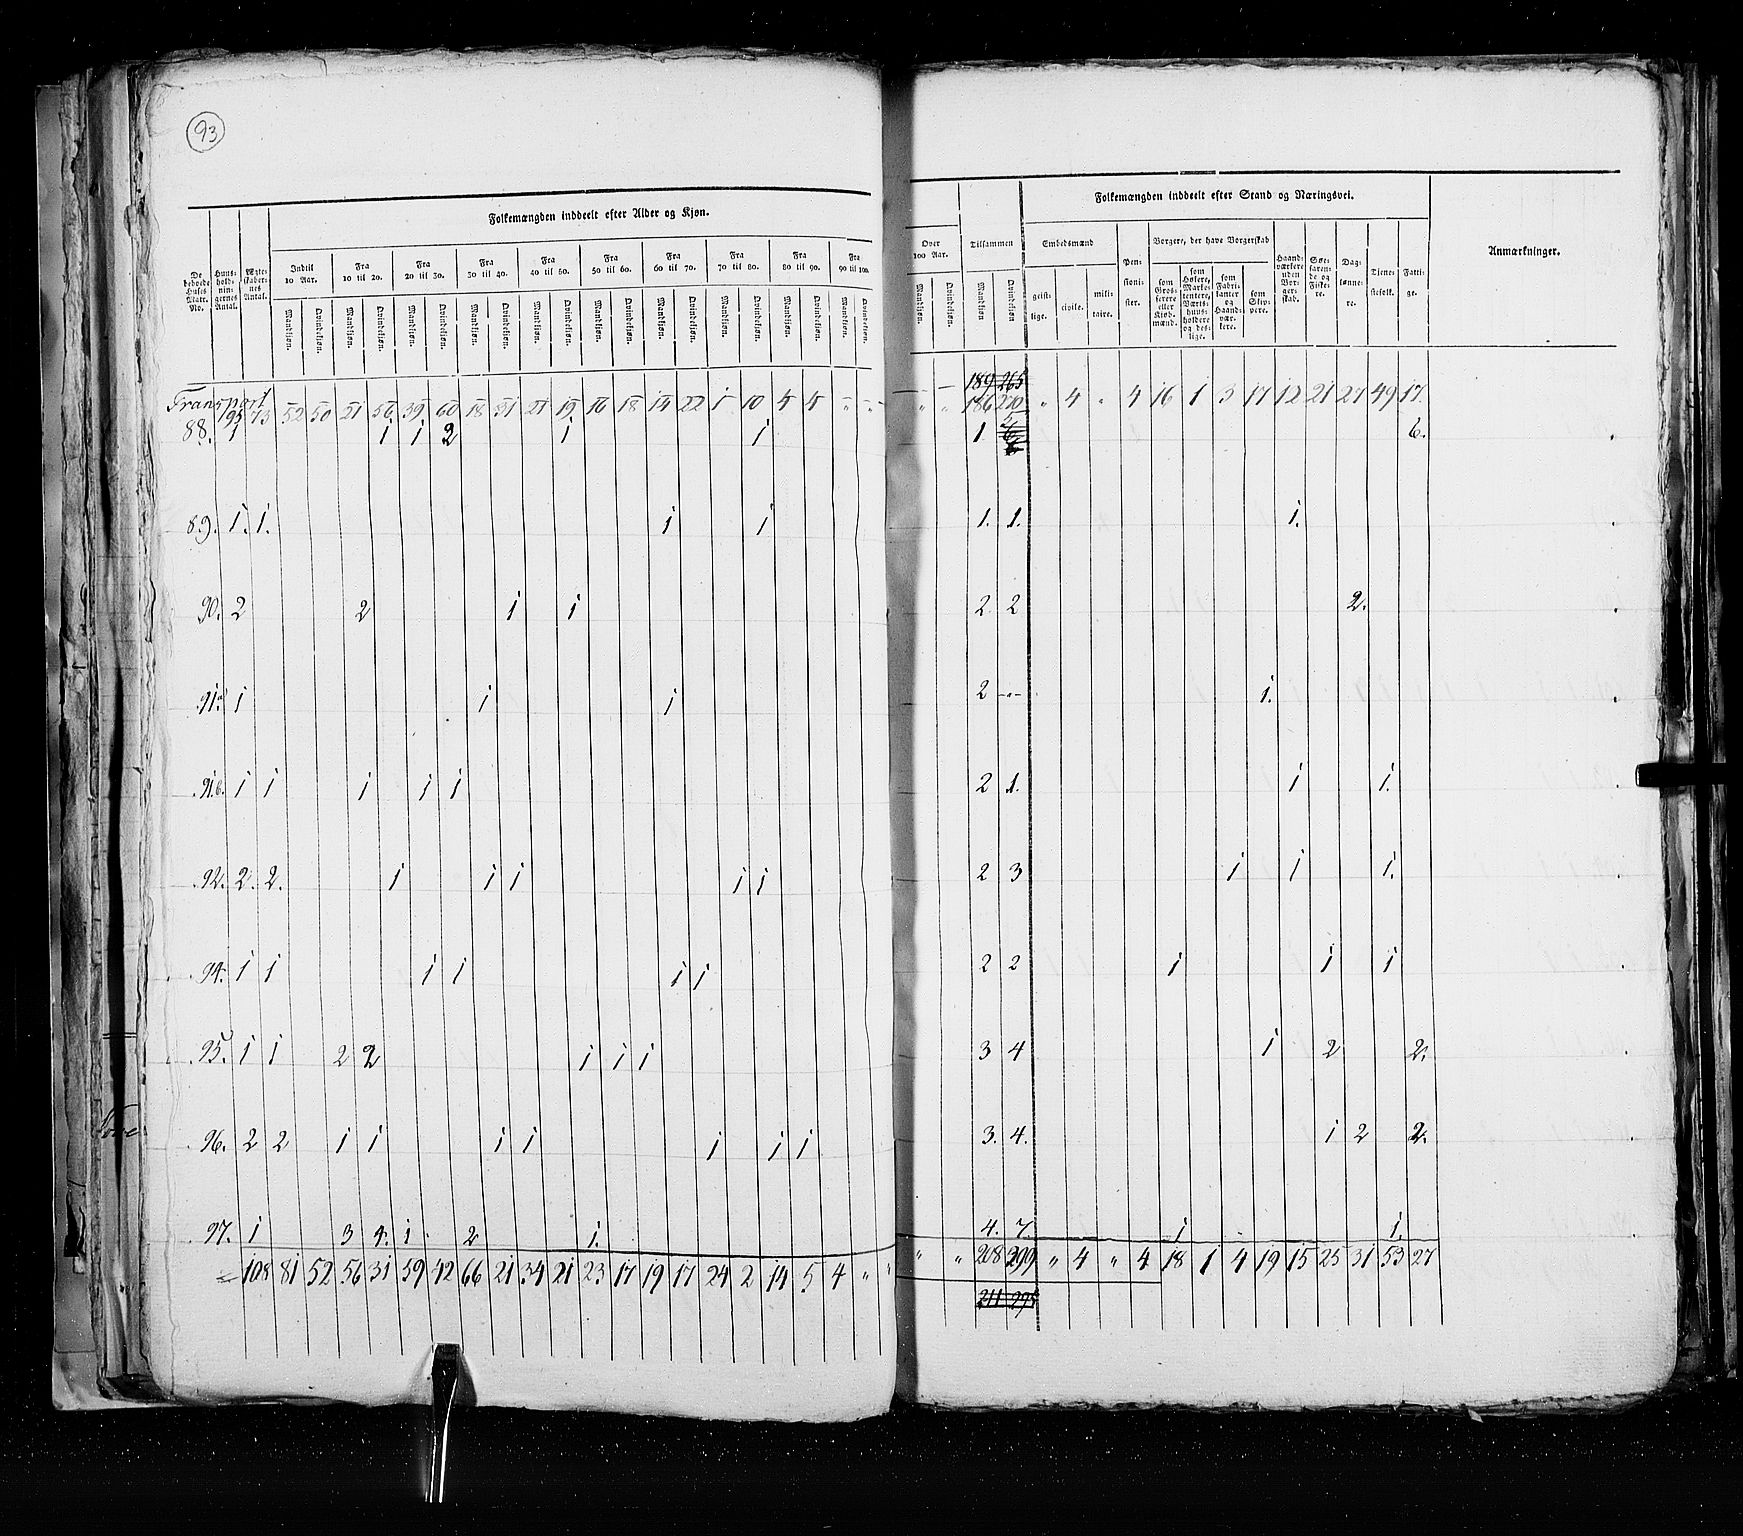 93
Folkemængden inddeelt efter Alder og Kjøn.
De beboede Huses Matr. No.
Huusholdningernes Antal.
Ægteskabernes Antal.
Indtil 10 Aar.
Fra 10 til 20.
Fra 20 til 30.
Fra 30 til 40.
Fra 40 til 50.
Fra 50 til 60.
Fra 60 til 70.
Fra 70 til 80.
Fra 80 til 90.
Fra 90 til 100.
Mandkiøn. Qvindekiøn. Mandkiøn. Qvindekiøn. Mandkiøn. Qvindekiøn. Mandkiøn. Qvindekiøn. Mandkiøn. Qvindekiøn. Mandkiøn. Qvindekiøn. Mandkiøn. Qvindekiøn. Mandkiøn. Qvindekiøn. Mandkiøn. Qvindekiøn. Mandkiøn. Qvindekiøn.
Transport
73 52 50 51 56 39 60 18 31 21 19 16 18 14 22 1 10 4 4 " "
88. 1 1 1 2 1 1
89. 1. 1. 1 1
90. 2 2 1 1
91a 1 1 1
91b. 1 1 1 1 1
92. 2. 2. 1 1 1 1 1
94. 1 1 1 1 1 1
95. 1 1 2 2 1 1 1
96. 2 2 1 1 1 1 1 1 1
97. 1 3 4. 1 2 1.
108 81 52 56 31 59 42 66 21 34 21 23 17 19 17 24 2 14 5 4 " "
Folkemængden inddeelt efter Stand og Næringsvei.
Over 100 Aar.
Mandkiøn. Qvindekiøn.
Tilsammen
Mandkiøn Qvindekiøn
Embedsmænd
geistlige. civile. militaire.
Pensionister.
Borgere, der have Borgerskab
som Grosserere eller Kiøbmænd.
som Høkere, Marketentere, Værtshuusholdere og deslige.
som Fabrikanter og Haandværkere.
som Skippere.
Haandværkere uden Borgerskab.
Søefarende og Fiskere.
Daglønnere.
Tjenestefolk.
Fattige.
Anmærkninger.
189 265
186 270 " 4 " 4 16 1 3 17 12 21 27 49 17.
1 5 6.
1. 1. 1.
2 2 2.
2 -"- 1.
2 1. 1 1.
2 3 1 1 1.
2 2 1 1 1
3 4 1 2 2.
3. 4. 1 2 2.
4. 7. 1 1.
" " 208 299 " 4 " 4 18 1 4 19 15 25 31 53 27
211 295